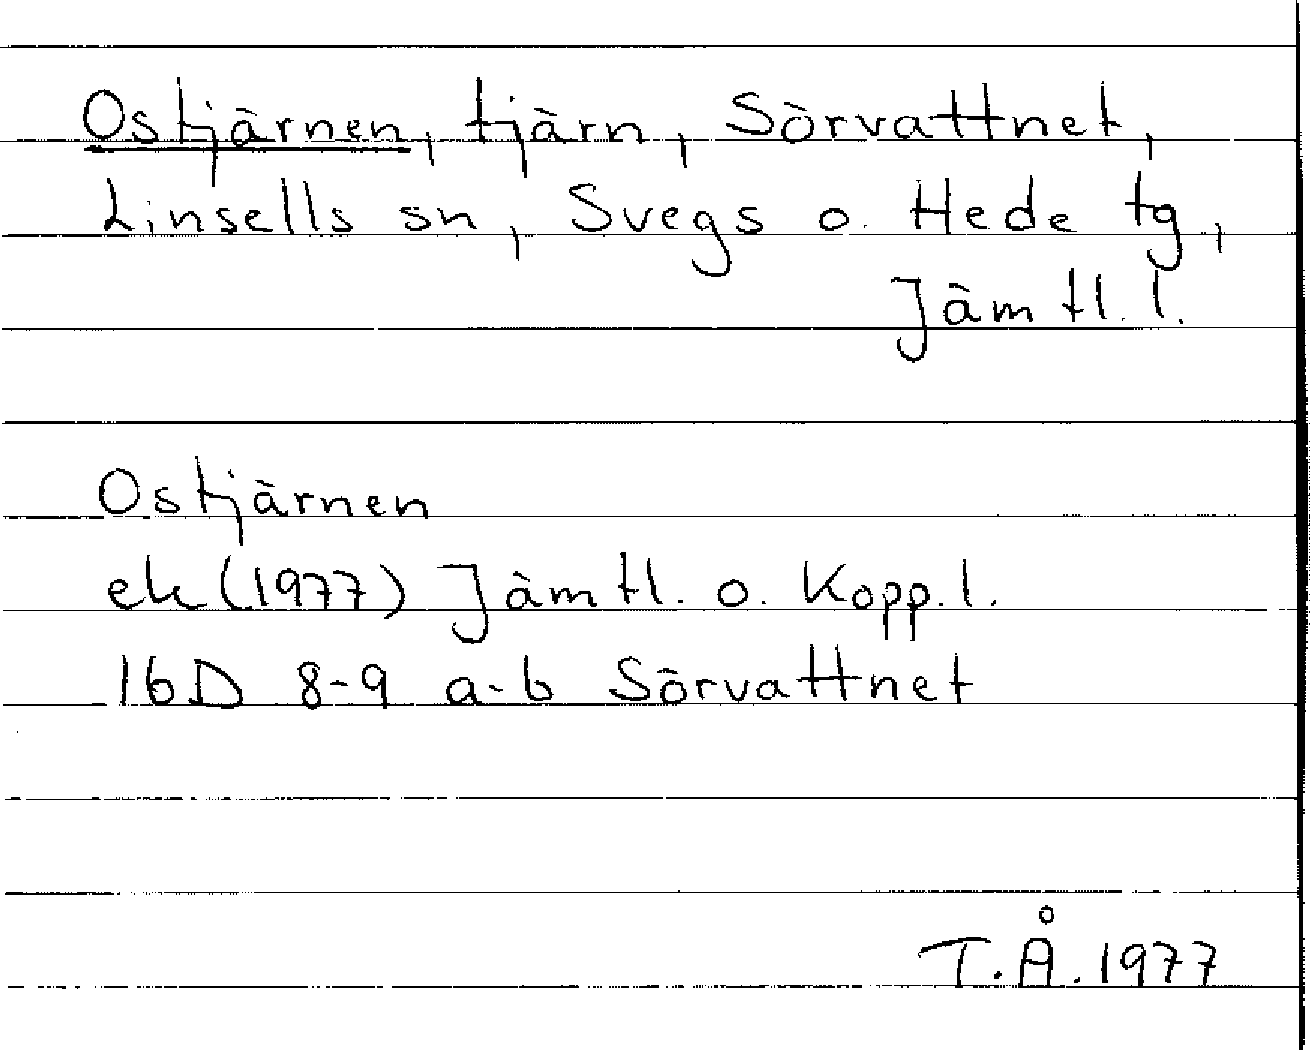 Ostjärnen, tjärn, Sörvattnet,
Linsells sn, Svegs o. Hede tg,
Jämtl. l.
Ostjärnen
ek (1977) Jämtl. o. Kopp. l.
16D 8-9 a-b Sörvattnet
T.Å. 1977